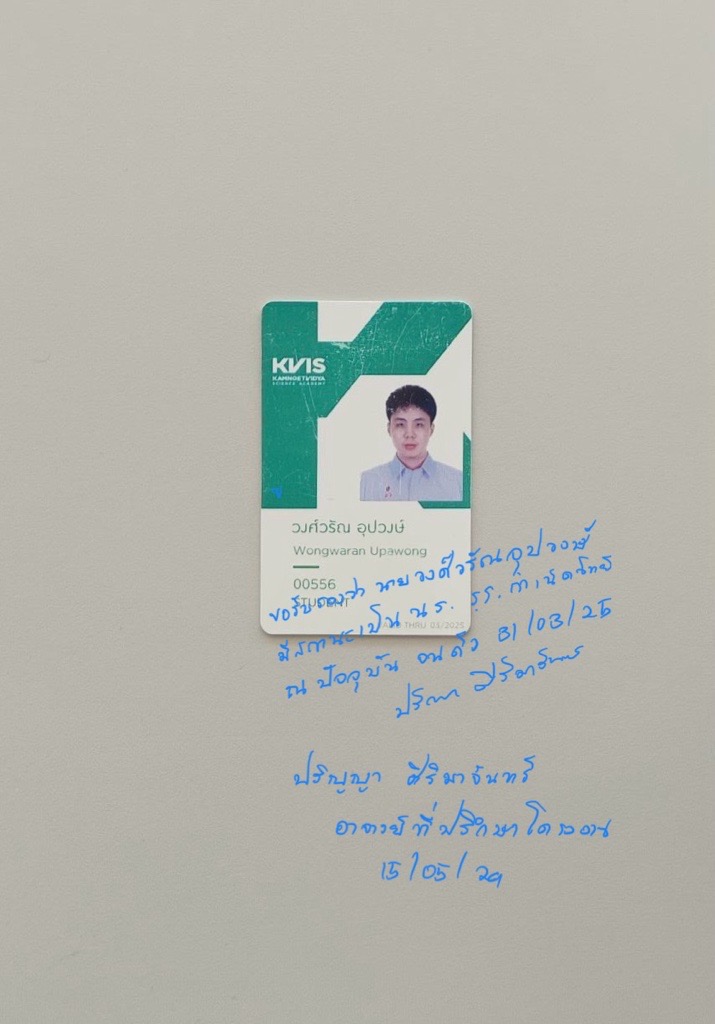 KVIS
KAMNOETVIDYA
SCIENCE ACADEMY
วงศ์วรัณ อุปวงษ์
Wongwaran Upawong
00556
STUDENT
THRU 03/2025
ขอรับรองว่า นายวงศ์วรัณ อุปวงษ์
มีสถานะเป็น นร. รร.กำเนิดวิทย์
ณ ปัจจุบัน จนถึง 31/03/25
ปริญญา ศิริมาจันทร์
ปริญญา ศิริมาจันทร์
อาจารย์ที่ปรึกษาโครงงาน
15/05/24